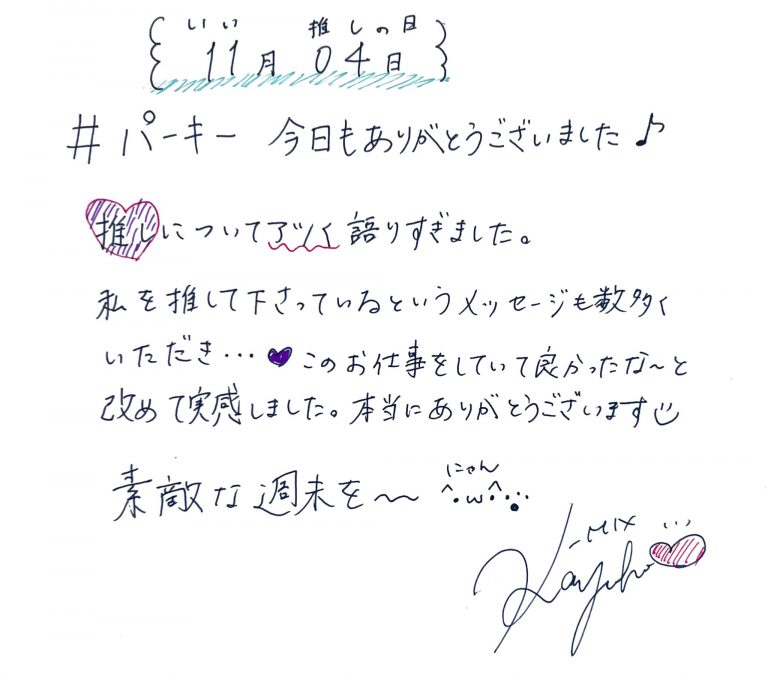 いい 推しの日
11月 04日
#パーキー 今日もありがとうございました♪
推しについてアツく語りすぎました。
私を推して下さっているというメッセージも数多く
いただき…💜このお仕事をしていて良かったな〜と
改めて実感しました。本当にありがとうございます
素敵な週末を〜〜
にゃん
^・ω・^
MIX